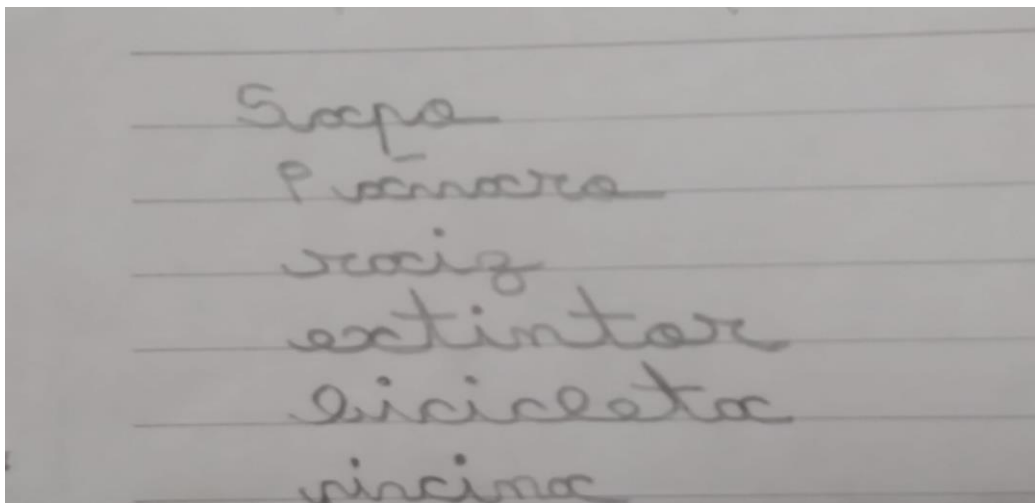 Sapo
Pássaro
raiz
extintor
bicicleta
piscina